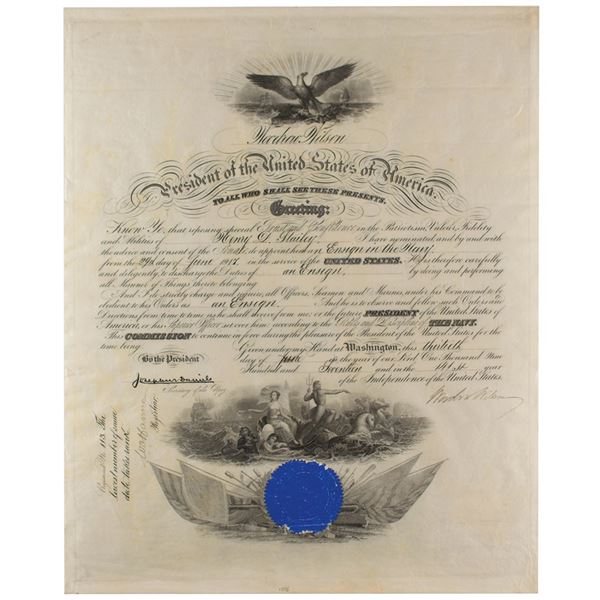 Woodrow Wilson
President of the United States of America.
TO ALL WHO SHALL SEE THESE PRESENTS,
Greeting:
Know Ye, that reposing special Trust and Confidence in the Patriotism, Valour, Fidelity
and Abilities of Henry I have nominated and by and with
the advice and consent of the Senate do appoint him an Ensign in the Navy
from the day of June 1917 in the service of the UNITED STATES. He is therefore carefully
and diligently to discharge the Duties of an Ensign, by doing and performing
all Manner of Things thereto belonging
And I do strictly charge and require all Officers, Seamen and Marines, under his Command to be
obedient to his Orders as an Ensign. And he is to observe and follow such Orders and
Directions from time to time as he shall receive from me, or the future PRESIDENT of the United States of
America, or his Superior Officer set over him, according to the Rules and Discipline of THE NAVY.
This COMMISSION to continue in force during the pleasure of the President of the United States for the
time being.
Given under my Hand at Washington, this thirtieth
By the President
day of June in the year of our Lord One Thousand Nine
Josephus Daniels
Hundred and Seventeen and in the 141st year
Secretary of the Navy.
of the Independence of the United States.
Woodrow Wilson
Register.
113 The
lowest number of same
date takes rank